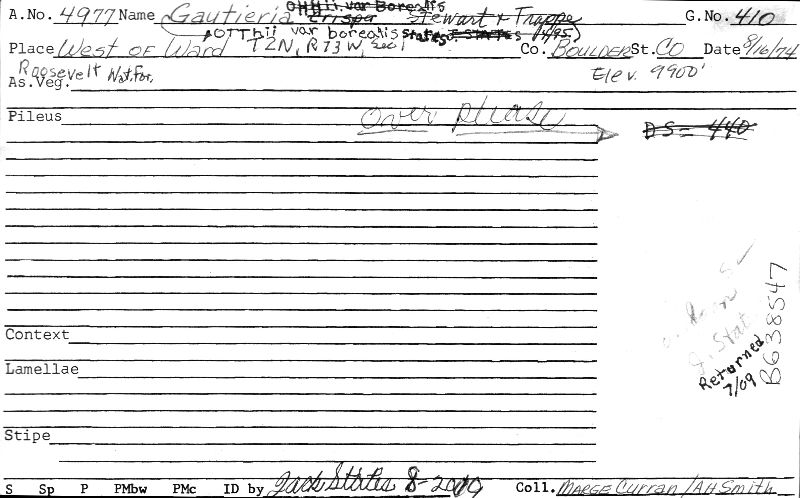 Otthii, var Borealis
A.No. 4977 Name Gautieria crispa Stewart & Trappe G.No. 410
OTThii var borealis States
Place West of Ward T2N, R73W, sec1 Co. BOULDER St. CO Date 9/16/74
Roosevelt Nat. For. Elev. 9900'
As.Veg.
Pileus Over please
DS = 440
Context
Lamellae
Stipe
G. Stat
Returned
7/09
B638547
S Sp P PMbw PMc ID by Jack States 8-2009 Coll. MARGE Curran / AH Smith